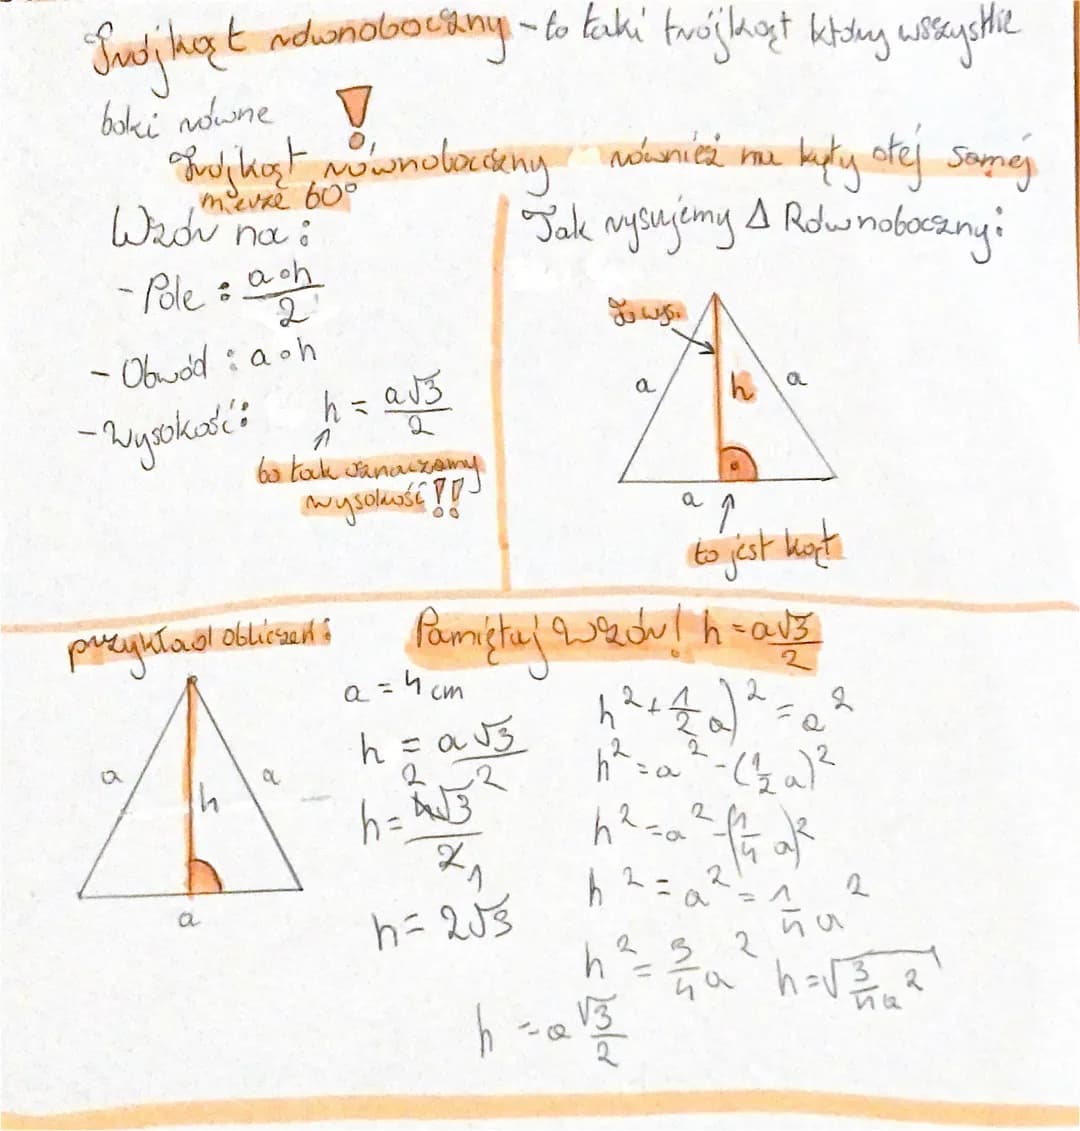 Trójkąt równoboczny - to taki trójkąt który wszystkie
boki równe !
Trójkąt równoboczny również ma kąty otej samej
mierze 60°
Wzór na:
- Pole : a∘h/2
- Obwód : a∘h
- Wysokość: h = a√3/2
bo tak oznaczamy
wysokość!!
Tak rysujemy Δ Równoboczny:
To wys.
a
h
a
a
to jest kąt
przykład obliczeń:
Pamiętaj wzór! h = a√3/2
a
h
a
a
a = 4 cm
h = a√3/2
h = 4√3/2 2 1
h = 2√3
h² + 1/2 a)² = a²
h² = a² - (1/2 a)²
h² = a² - (1/4 a)²
h² = a² = 1/4 a²
h² = 3/4 a² h = √3/4 a²
h = a √3/2